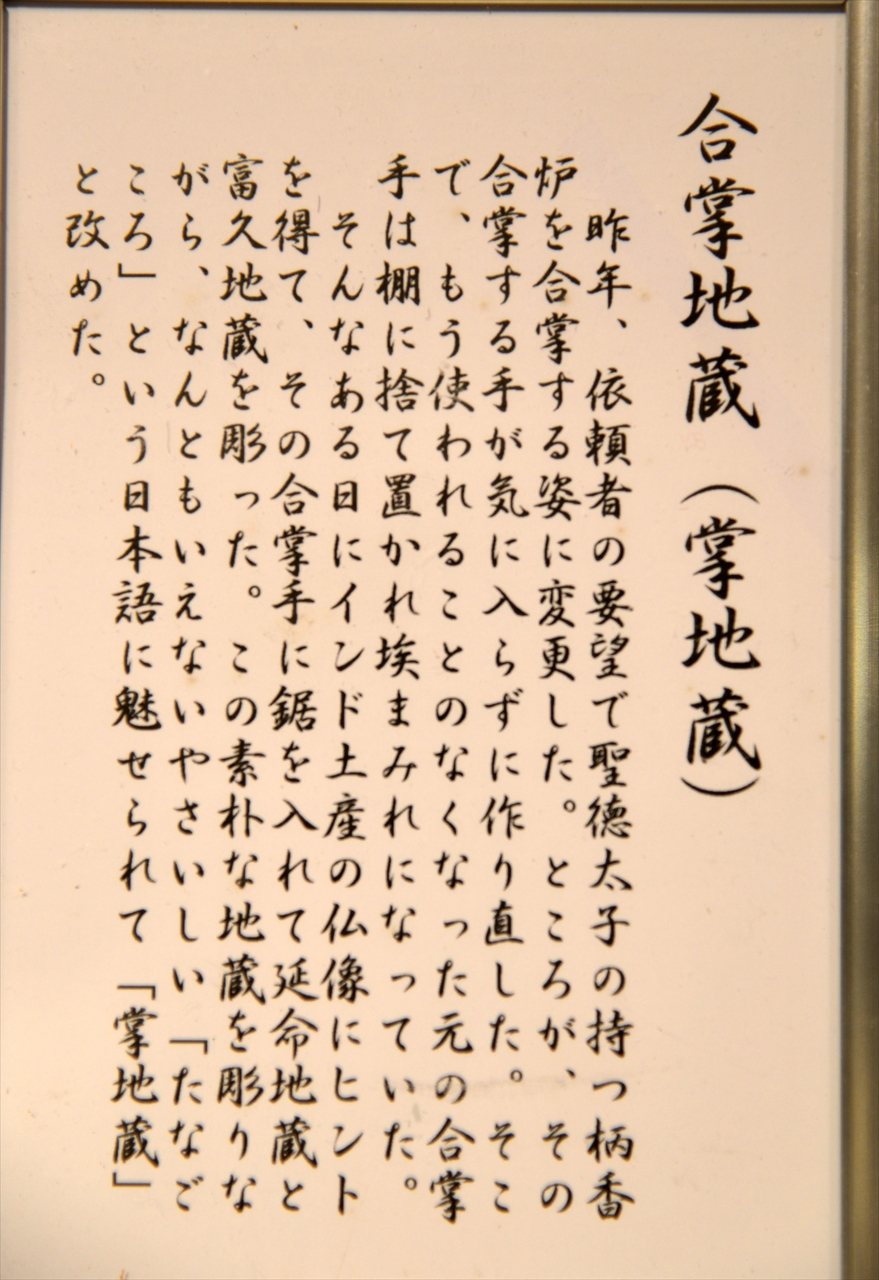 合掌地蔵（掌地蔵）
昨年、依頼者の要望で聖徳太子の持つ柄香
炉を合掌する姿に変更した。ところが、その
合掌する手が気に入らずに作り直した。そこ
で、もう使われることのなくなった元の合掌
手は棚に捨て置かれ埃まみれになっていた。
そんなある日にインド土産の仏像にヒント
を得て、その合掌手に鋸を入れて延命地蔵と
富久地蔵を彫った。この素朴な地蔵を彫りな
がら、なんともいえないいやさいしい「たなご
ころ」という日本語に魅せられて「掌地蔵」
と改めた。